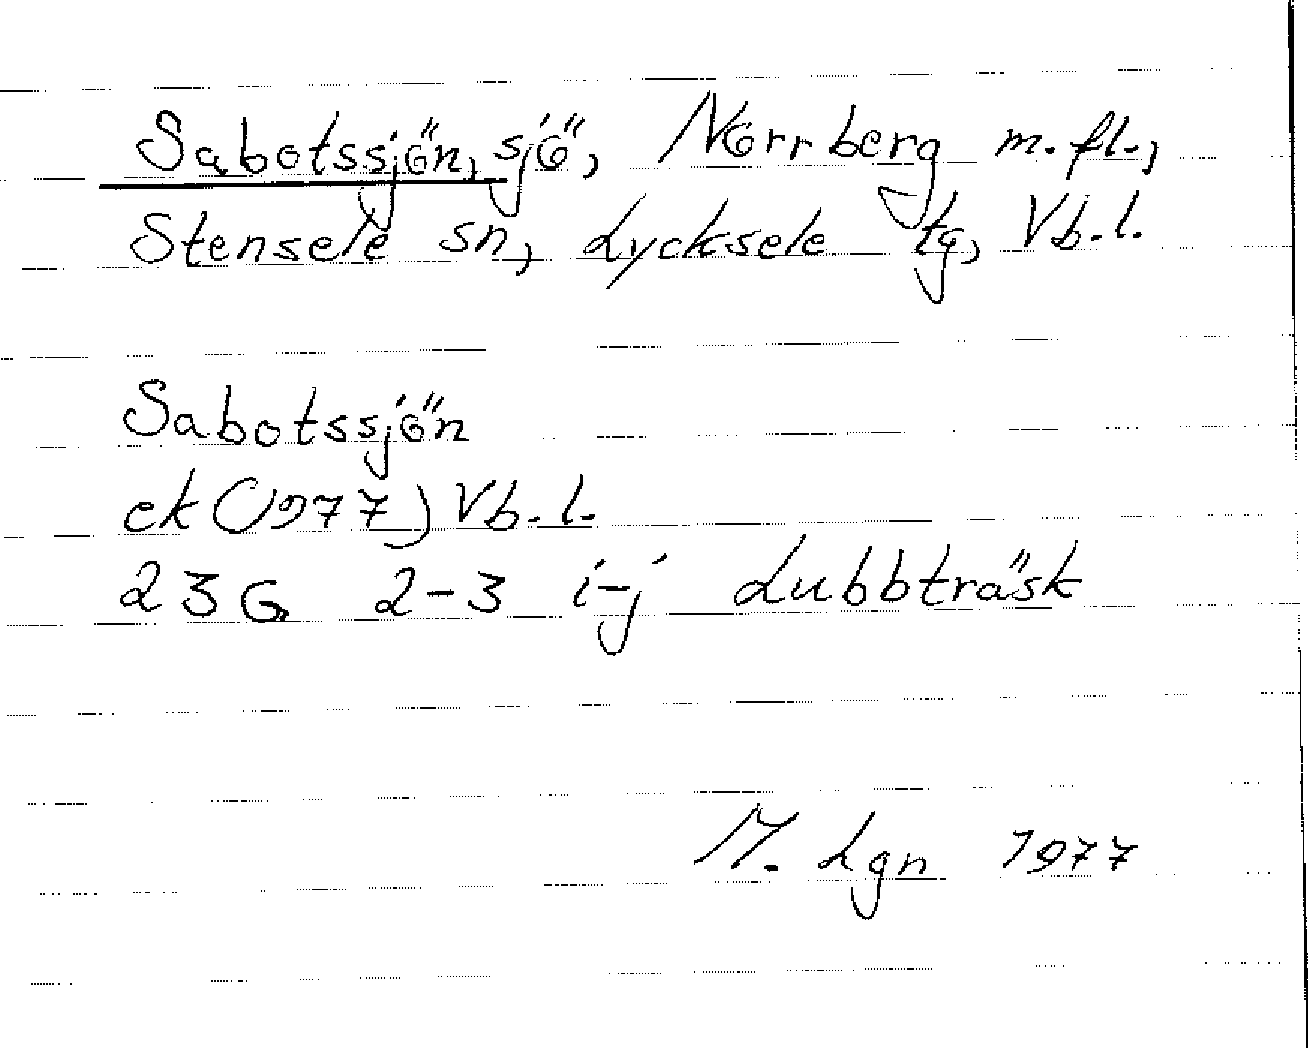 Sabotssjön, sjö, Norrberg m.fl.,
Stensele sn, Lycksele tg, Vb.l.
Sabotssjön
ek (1977) Vb.l.
23G 2-3 i-j Lubbträsk
M. Lgn 1977